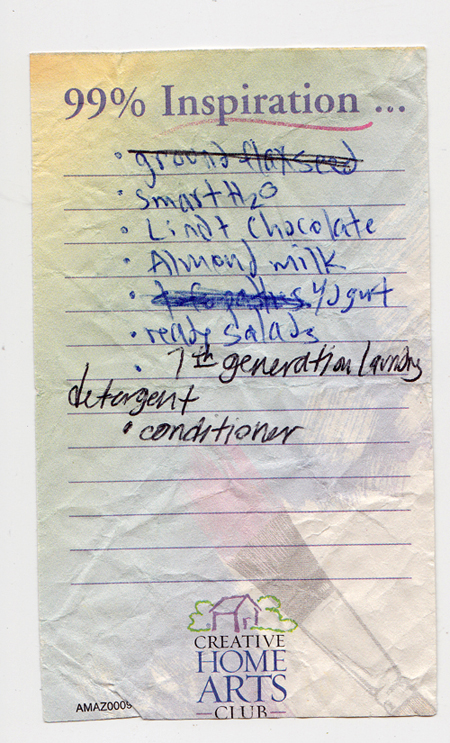 99% Inspiration ...
• ground flaxseed
• smart H2O
• Lindt Chocolate
• Almond milk
• Yogurt
• ready salads
• 7th generation laundry
detergent
• conditioner
CREATIVE
HOME
ARTS
CLUB
AMAZ0009